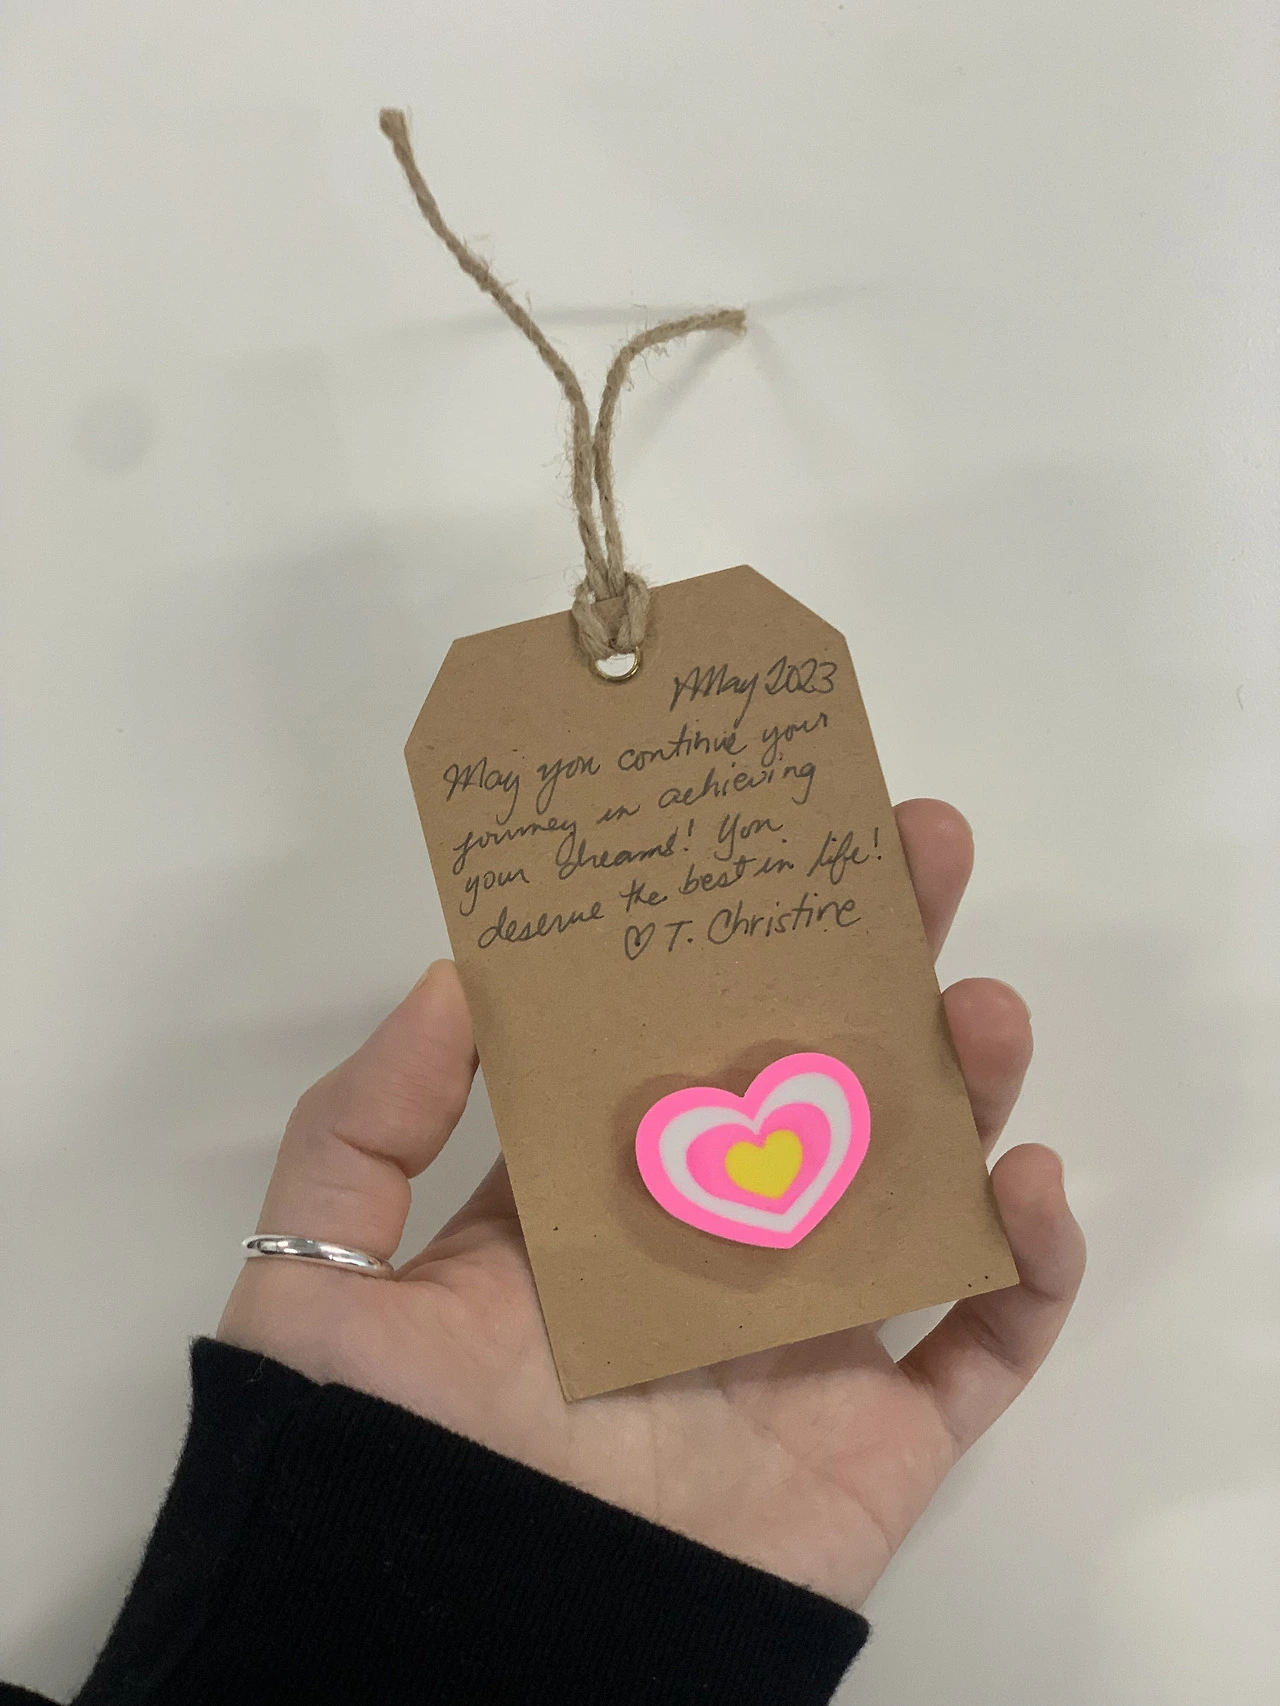 May 2023
May you continue your
journey in achieving
your dreams! You
deserve the best in life!
♡ T. Christine